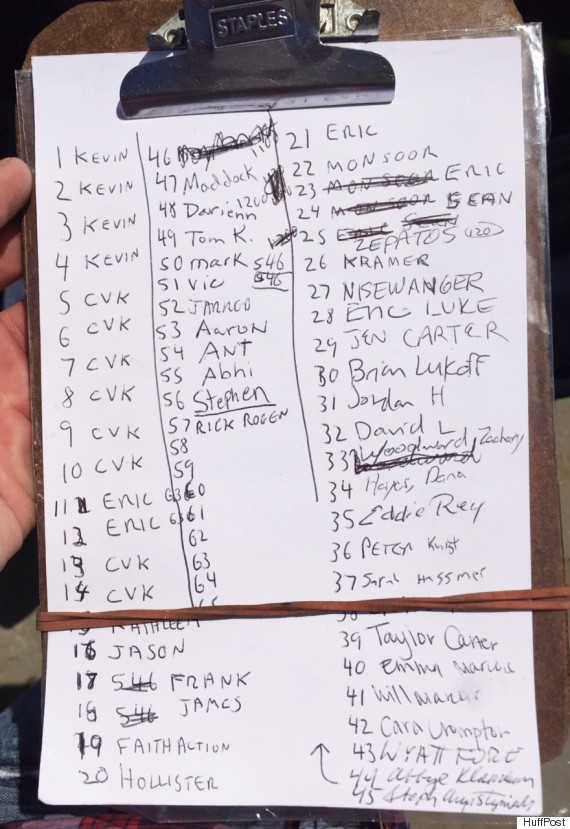 STAPLES
1 KEVIN
2 KEVIN
3 KEVIN
4 KEVIN
5 CVK
6 CVK
7 CVK
8 CVK
9 CVK
10 CVK
11 ERIC
12 ERIC
13 CVK
14 CVK
KATHLEEN
16 JASON
17 546 FRANK
18 546 JAMES
19 FAITH ACTION
20 HOLLISTER
46
47 Maddock
48 Darienn 1200
49 Tom K.
50 mark 546
51 Vic 546
52 JARRED
53 Aaron
54 ANT
55 Abhi
56 Stephen
57 RICK ROGEN
58
59
60
61
62
63
64
65
21 ERIC
22 MONSOOR
23 MONSOOR ERIC
24 MONSOOR SEAN
25 SEAN
ZEPATOS 120
26 KRAMER
27 NISEWANGER
28 ERIC LUKE
29 JEN CARTER
30 Brian Lukoff
31 Jordan H
32 David L
33 Woodward, Zachary
34 Hayes, Dana
35 Eddie Rey
36 PETER
37 Sarah
38
39 Taylor Carter
40 Emma
41 Will
42 Cara Crumpton
43 WYATT FORE
44
45 Steph
HuffPost